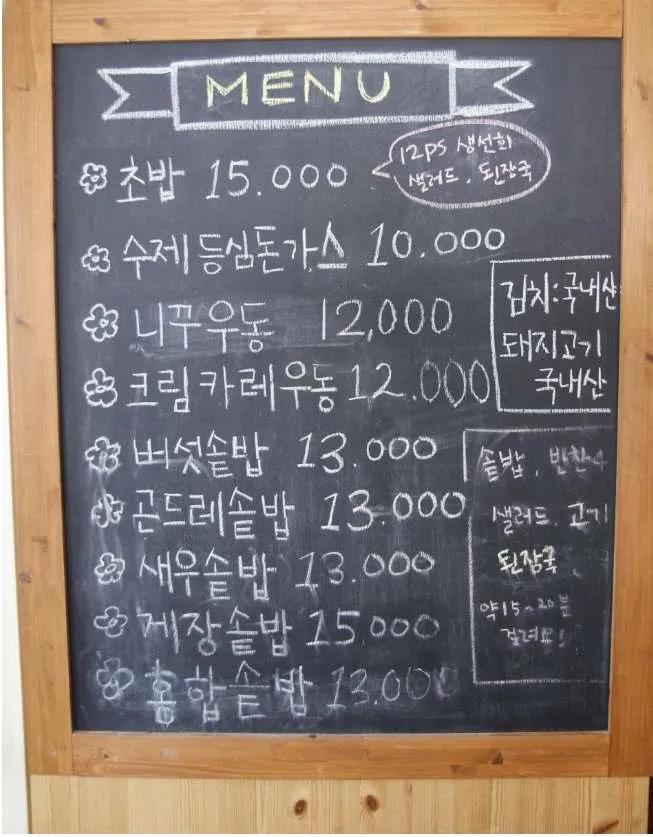 MENU
초밥 15.000
12PS 생선회
샐러드, 된장국
수제 등심돈가스 10.000
니꾸우동 12,000
크림카레우동 12.000
버섯솥밥 13.000
곤드레솥밥 13.000
새우솥밥 13.000
게장솥밥 15.000
홍합솥밥 13.000
김치:국내산
돼지고기
국내산
솥밥, 반찬4
샐러드, 고기
된장국
약15~20분
걸려요!